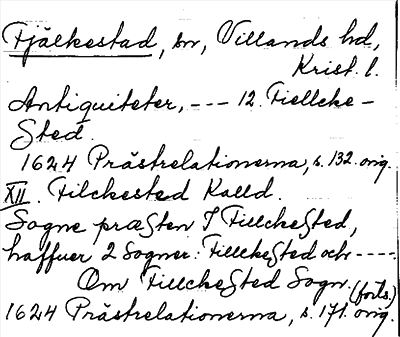 Fjälkestad, sn, Villands hd,
Krist. l.
Antiquiteter, --- 12. Fiellcke-
Sted.
1624 Prästrelationerna, s. 132. orig.
XII. Filckested Kalld.
Sogne præsten I FillckeSted,
haffuer 2 Sogner: FillckeSted och ----.
Om FillckeSted Sogn. (forts.)
1624 Prästrelationerna, s. 171. orig.